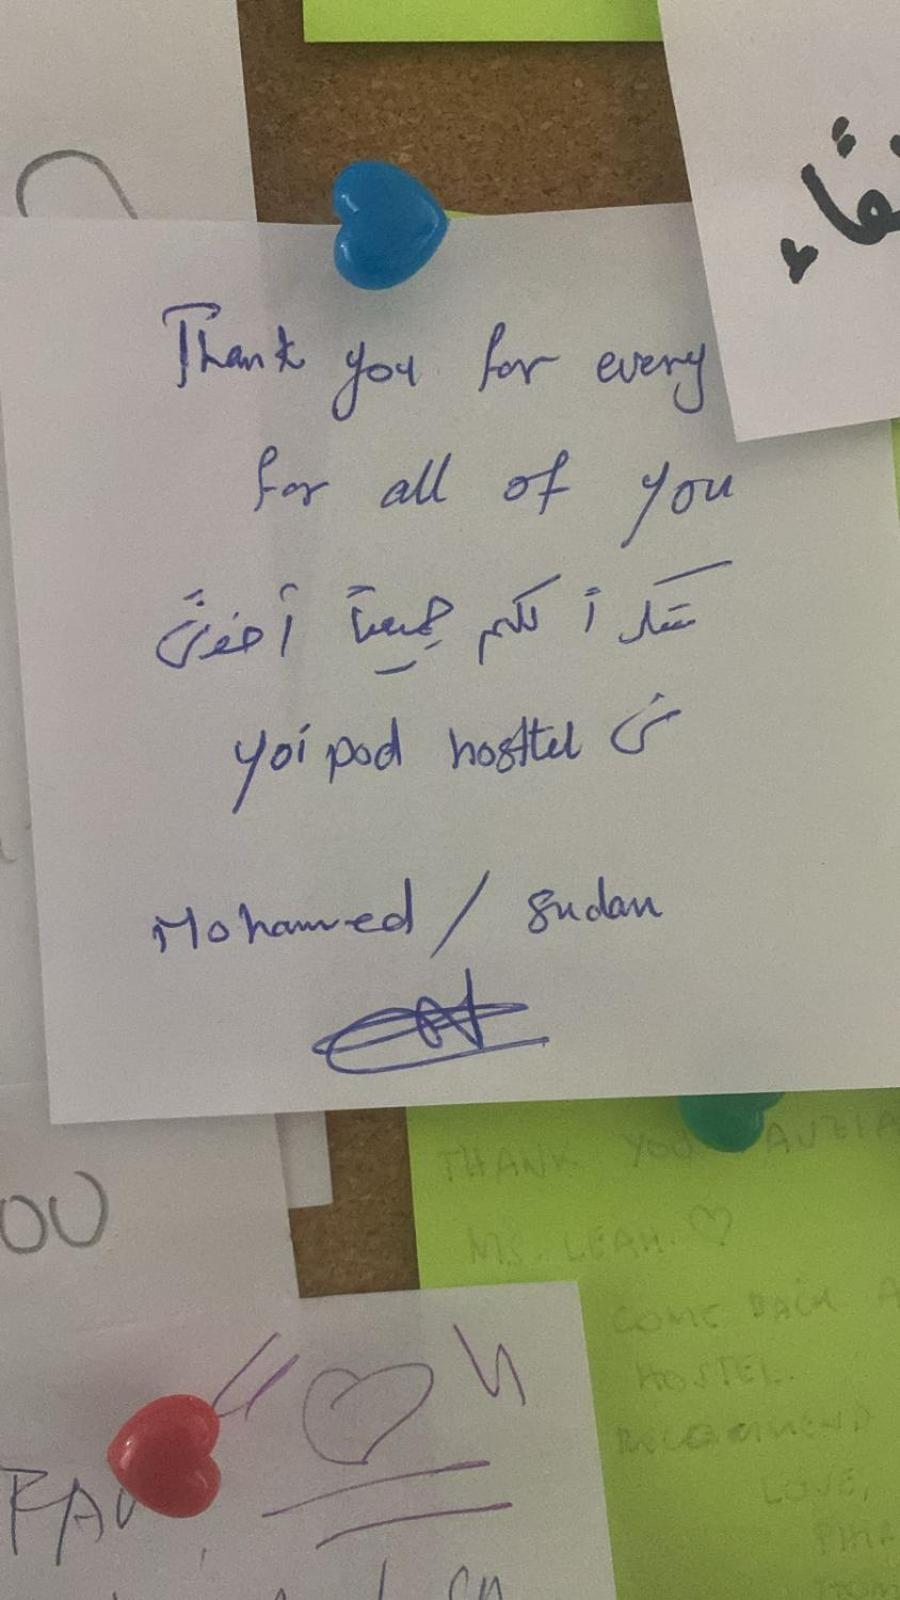 Thank you for every
for all of you
شكراً لكم جميعاً أخوتى
yoi pod hosttel فى
Mohamed / Sudan
OU
THANK YOU
MS. LEAH. ♡
COME BACK A
HOSTEL.
RECOMMEND
LOVE,